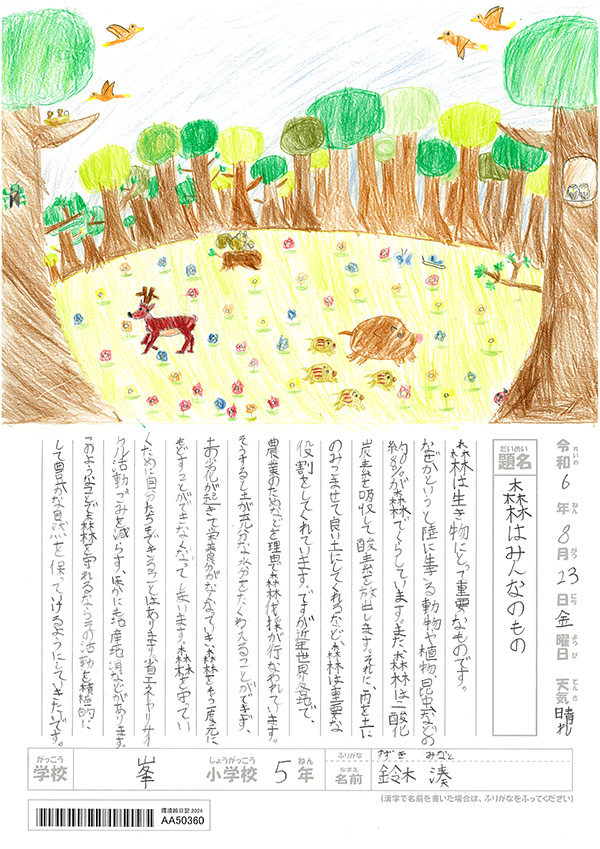 令和6年8月23日金曜日 天気 晴れ
れいわ ねん がつ にち ようび てんき
だいめい
題名 森林はみんなのもの
森林は生き物にとって重要なものです。
なぜかというと陸に生きる動物や植物、昆虫などの
約80%が森林でくらしています。また、森林は二酸化
炭素を吸収して酸素を放出します。それに、雨を土に
のみこませて良い土にしてくれるなど、森林は重要な
役割をしてくれています。ですが近年世界各地で、
農業のためなどを理由で森林伐採が行なわれています。
そうすると土が充分な水分をたくわえることができず、
土の劣化が起きて栄養分がなくなっていき、森林をもう一度元に
もどすことができなくなってしまいます。森林を守ってい
くために自分たちもできることはあります。省エネやリサイ
クル活動、ごみを減らす、ほかにも などがあります。
このようなことでも森林を守れるならその活動を積極的に
して豊かな自然を保っていけるようにしていきたいです。
がっこう しょうがっこう ねん ふりがな すずき みなと
学校 峯 小学校 5年 なまえ 名前 鈴木 湊
(漢字で名前を書いた場合は、ふりがなをふってください)
環境絵日記 2024
AA50360